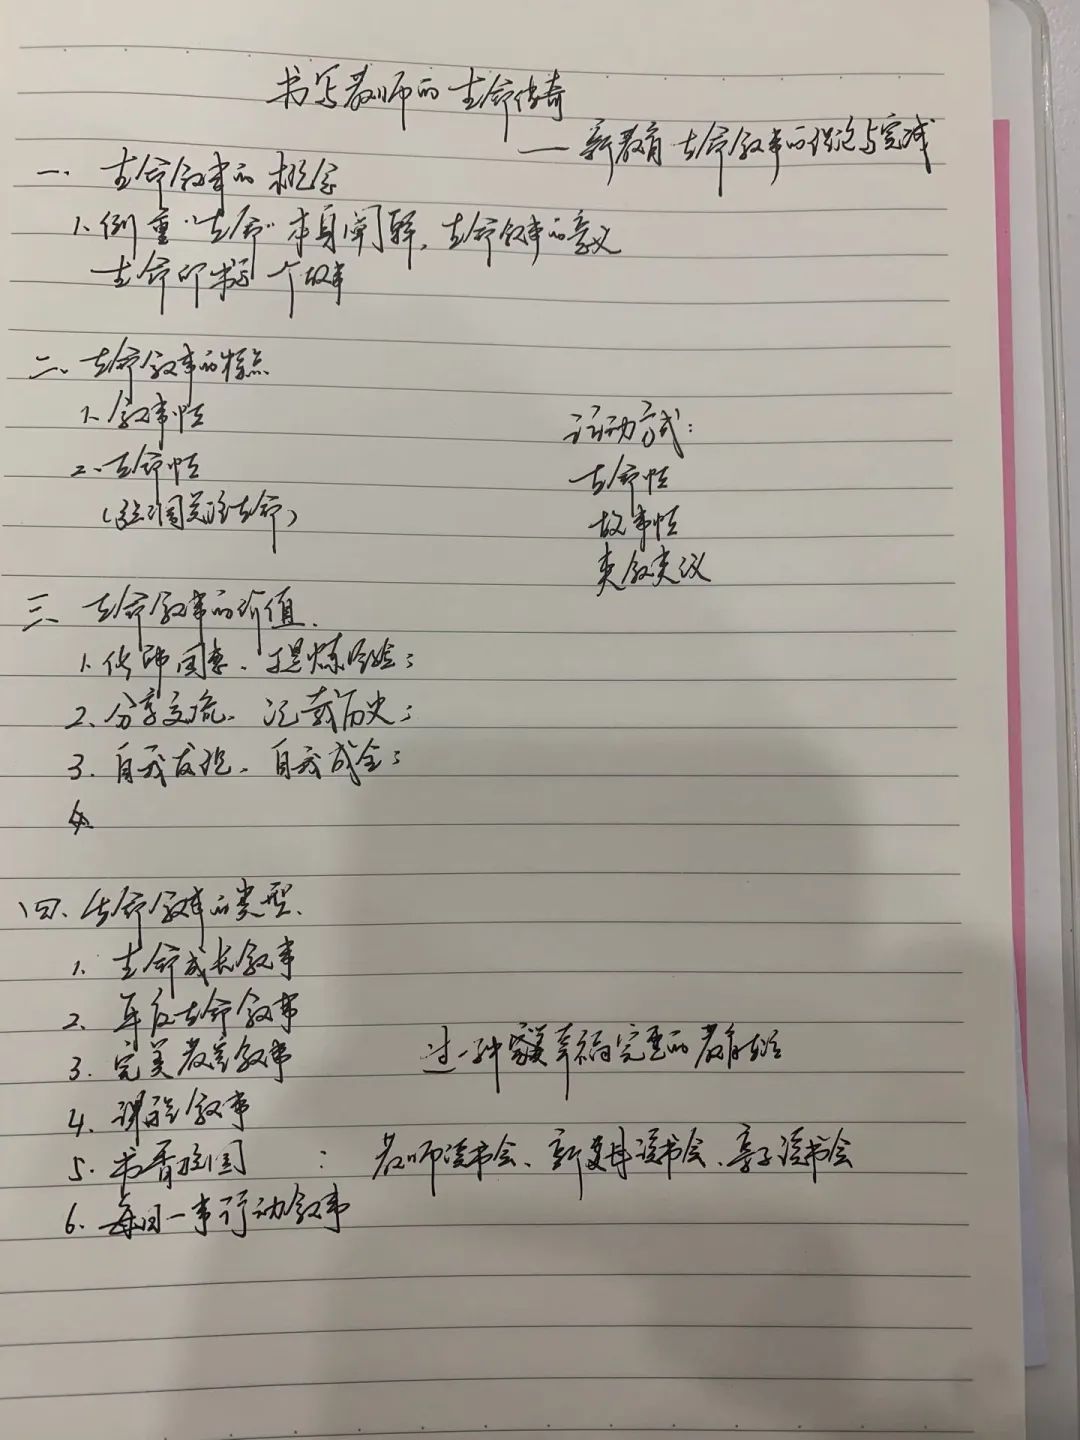 书写教师的生命传奇
——新教育生命叙事的理论与实践
一、生命叙事的概念
1、侧重“生命”本身阐释,生命叙事的意义
生命即书写一个故事
二、生命叙事的特点
1、叙事性
2、生命性
(强调关注生命)
运动方式:
生命性
故事性
夹叙夹议
三、生命叙事的价值.
1.
、提炼经验;
2、分享交流、记载历史;
3.自我发现、自我成全;
四、生命叙事的类型.
1、生命成长叙事
2、年度生命叙事
3.完美教室叙事
过一种 幸福完整的教育生活
4.课程叙事
5.书香校园 : 教师读书会、新 读书会、亲子读书会
6.每日一事行动叙事